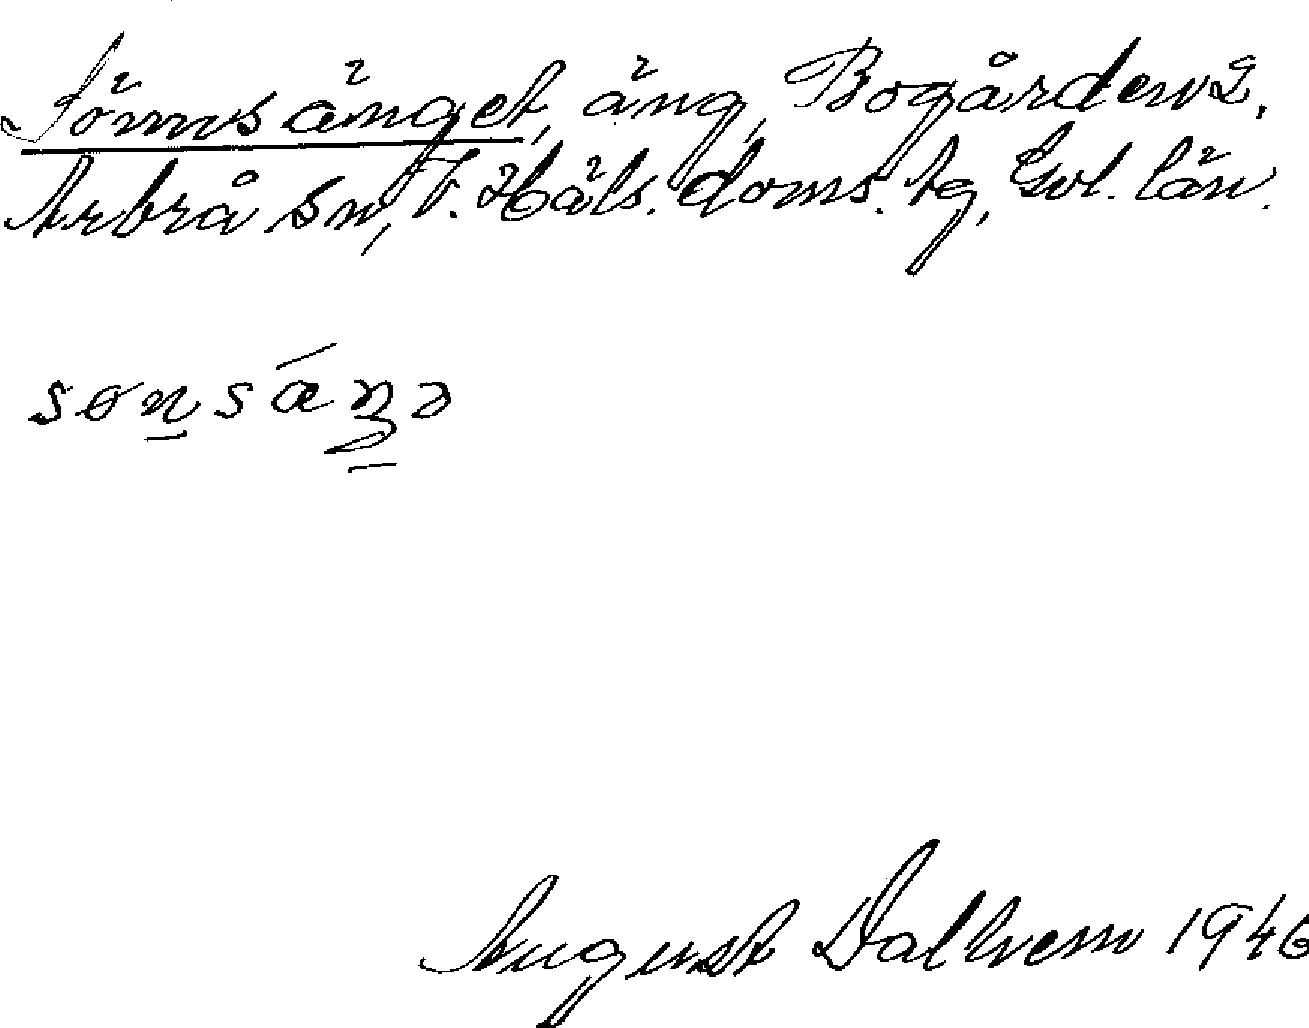 Sönnsänget, äng, Bogården 2,
Arbrå sn, V. Häls. doms. tg, Gvl. län.
sɵnsáŋə
August Dalhem 1946